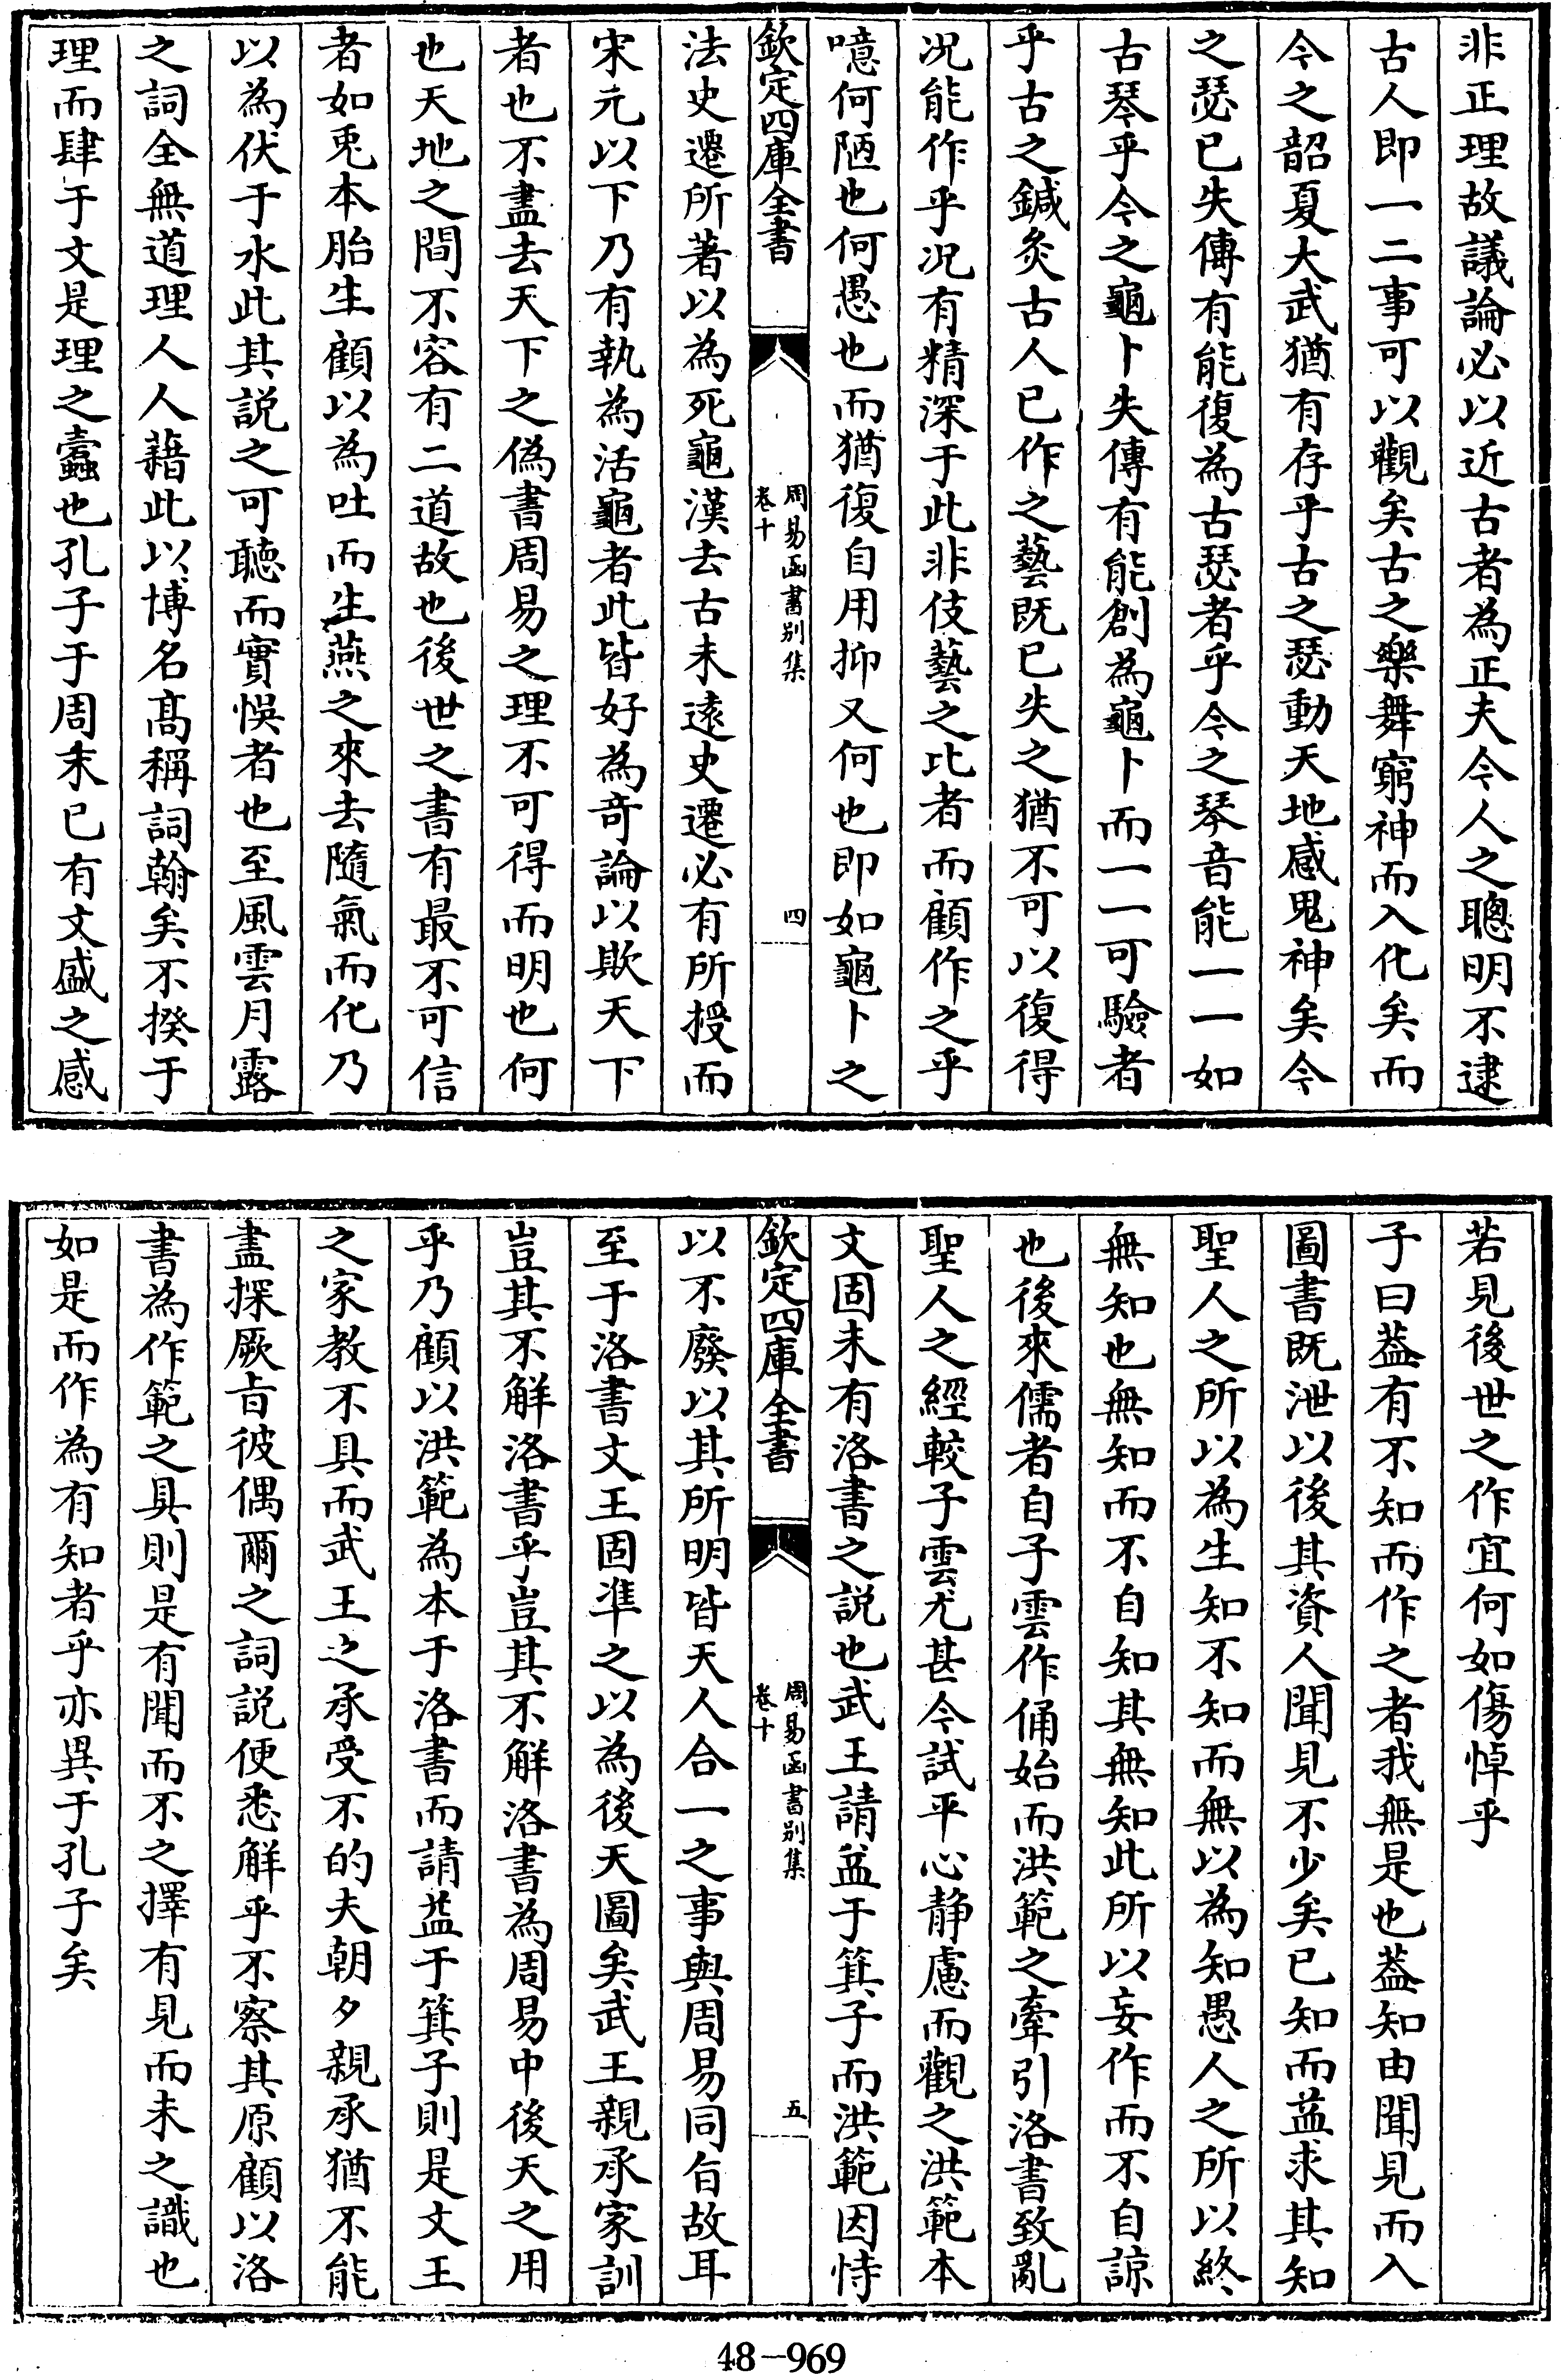 非正理故議論必以近古者為正夫今人之聰明不逮
古人即一二事可以觀矣古之樂舞窮神而入化矣而
今之韶夏大武猶有存乎古之瑟動天地感鬼神矣今
之瑟已失傳有能復為古瑟者乎今之琴音能一一如
古琴乎今之龜卜失傳有能創為龜卜而一一可驗者
乎古之鍼灸古人已作之藝既已失之猶不可以復得
况能作乎况有精深于此非伎藝之比者而顧作之乎
噫何陋也何愚也而猶復自用抑又何也即如龜卜之
欽定四庫全書
周易函書别集
卷十
四
法史遷所著以為死龜漢去古未遠史遷必有所授而
宋元以下乃有執為活龜者此皆好為竒論以欺天下
者也不盡去天下之偽書周易之理不可得而明也何
也天地之間不容有二道故也後世之書有最不可信
者如兎本胎生顧以為吐而生燕之來去隨氣而化乃
以為伏于水此其説之可聽而實悞者也至風雲月露
之詞全無道理人人藉此以博名髙稱詞翰矣不揆于
理而肆于文是理之蠹也孔子于周末已有文盛之感
若見後世之作宜何如傷悼乎
子曰葢有不知而作之者我無是也葢知由聞見而入
圖書既泄以後其資人聞見不少矣已知而益求其知
聖人之所以為生知不知而無以為知愚人之所以終
無知也無知而不自知其無知此所以妄作而不自諒
也後來儒者自子雲作俑始而洪範之牽引洛書致亂
聖人之經較子雲尤甚今試平心静慮而觀之洪範本
文固未有洛書之説也武王請益于箕子而洪範因恃
欽定四庫全書
周易函書别集
卷十
五
以不廢以其所明皆天人合一之事與周易同㫖故耳
至于洛書文王固凖之以為後天圖矣武王親承家訓
豈其不解洛書乎豈其不解洛書為周易中後天之用
乎乃顧以洪範為本于洛書而請益于箕子則是文王
之家教不具而武王之承受不的夫朝夕親承猶不能
盡探厥㫖彼偶爾之詞説便悉解乎不察其原顧以洛
書為作範之具則是有聞而不之擇有見而未之識也
如是而作為有知者乎亦異于孔子矣
48-969